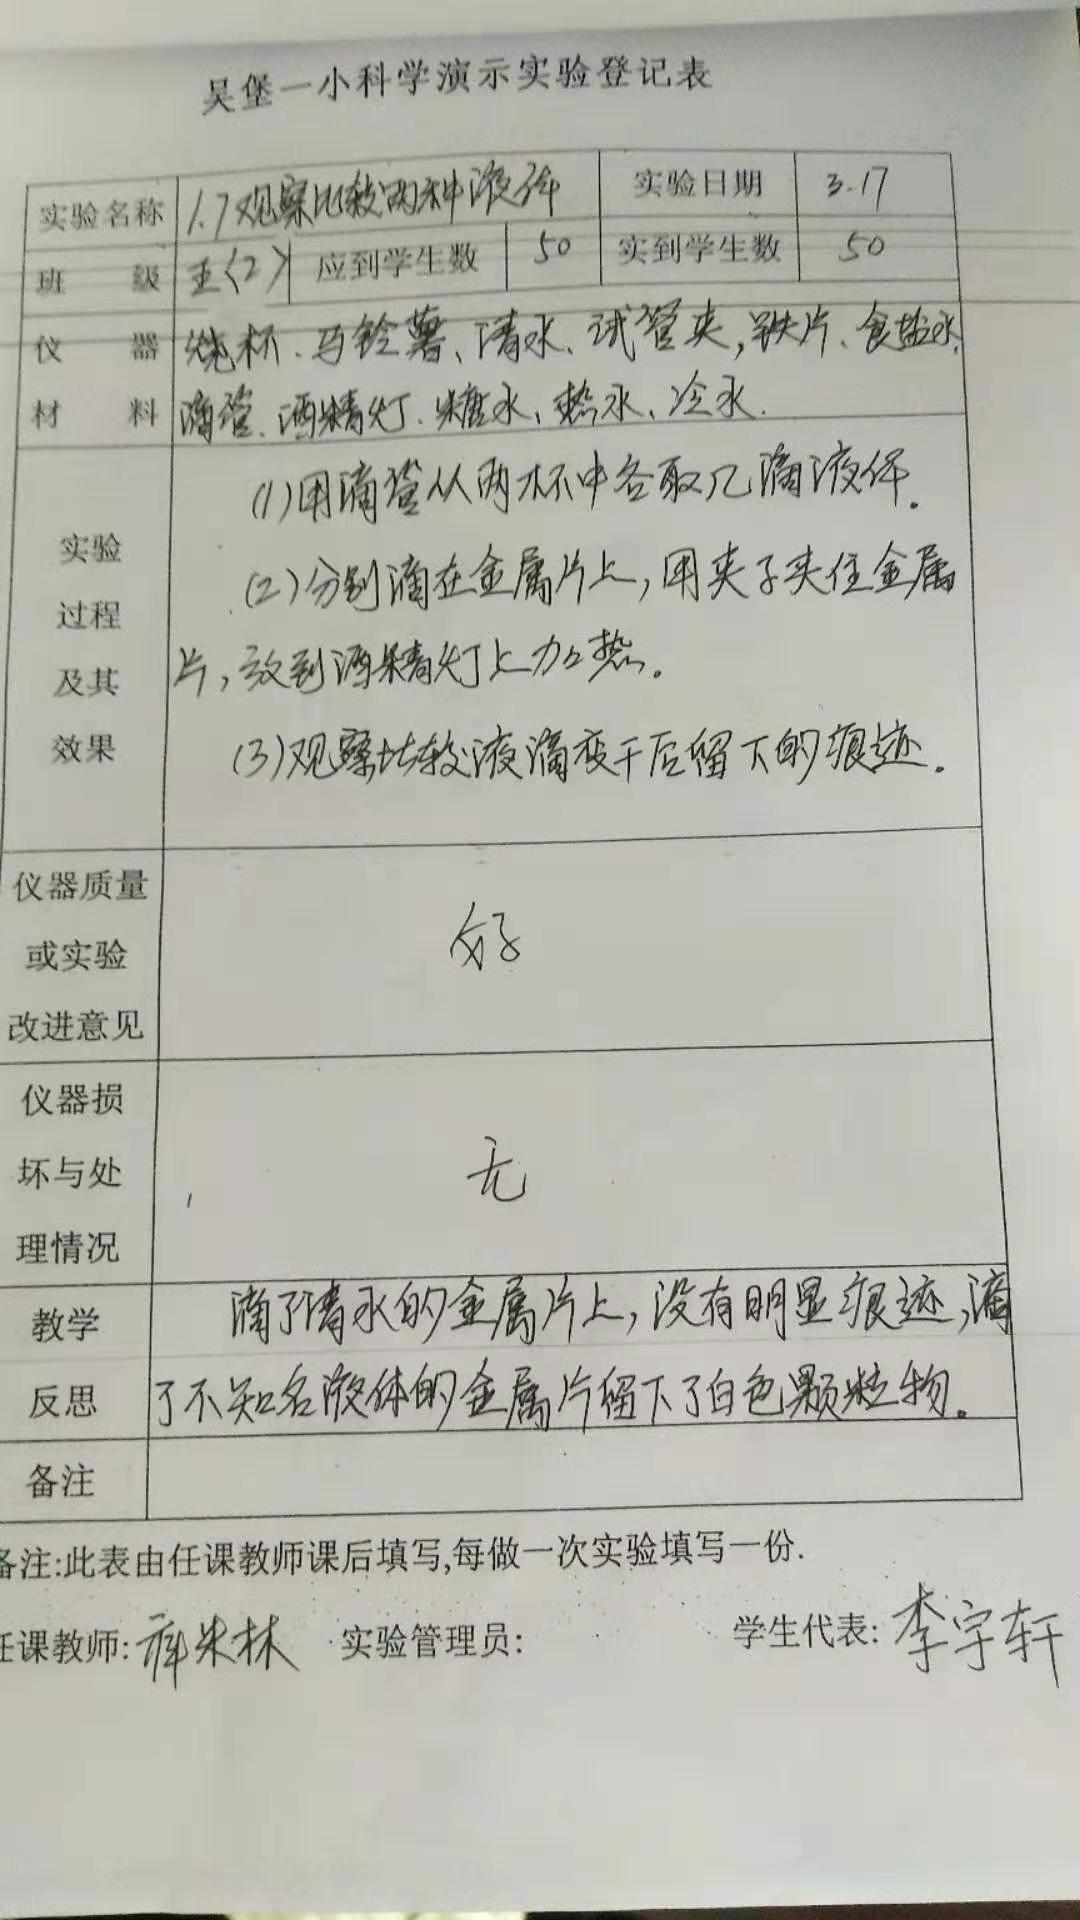 吴堡一小科学演示实验登记表
实验名称 1.7观察比较两种液体 实验日期 3.17
班 级 五〈2〉 应到学生数 50 实到学生数 50
仪 器 烧杯、马铃薯、清水、试管夹,铁片、食盐水、
材 料 滴管、酒精灯、糖水、热水、冷水.
(1)用滴管从两杯中各取几滴液体。
实验
(2)分别滴在金属片上,用夹子夹住金属
过程
片,放到酒精灯上加热。
及其
效果
(3)观察比较液滴变干后留下的痕迹。
仪器质量
或实验
好
改进意见
仪器损
坏与处
无
理情况
教学 滴了清水的金属片上,没有明显痕迹,滴
反思 了不知名液体的金属片留下了白色颗粒物。
备注
备注:此表由任课教师课后填写,每做一次实验填写一份.
任课教师: 实验管理员: 学生代表: 李宇轩